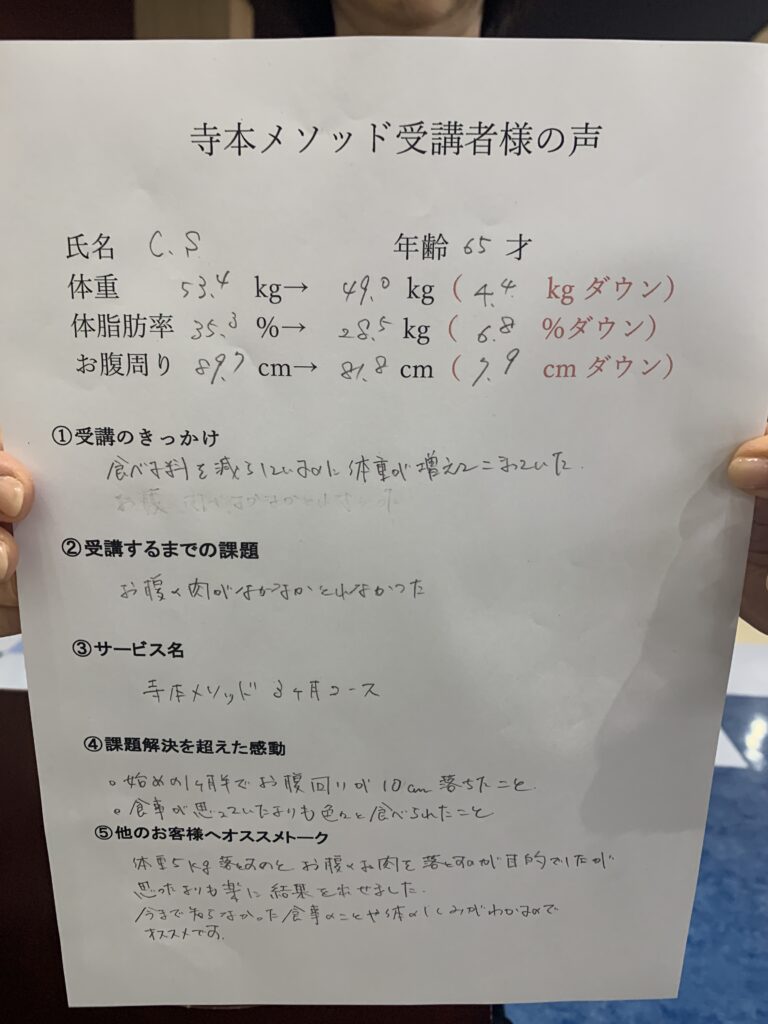 寺本メソッド受講者様の声
氏名 C.S 年齢 65 才
体重 53.4 kg→ 49.0 kg ( 4.4 kg ダウン)
体脂肪率 35.3 %→ 28.5 kg ( 6.8 %ダウン)
お腹周り 89.7 cm→ 81.8 cm ( 7.9 cm ダウン)
①受講のきっかけ
食べる料を減らしているのに体重が増えてこまっていた.
②受講するまでの課題
お腹の肉がなかなかとれなかった
③サービス名
寺本メソッド 3ヶ月コース
④課題解決を超えた感動
。始めの1ヶ月半でお腹回りが10cm落ちたこと.
。食事が思っていたよりも色々と食べられたこと
⑤他のお客様へオススメトーク
体重5kg落とすのとお腹のお肉を落とすのが目的でしたが
思ったよりも楽に結果を出せました.
今まで知らなかった食事のことや体のしくみがわかるので
オススメです.